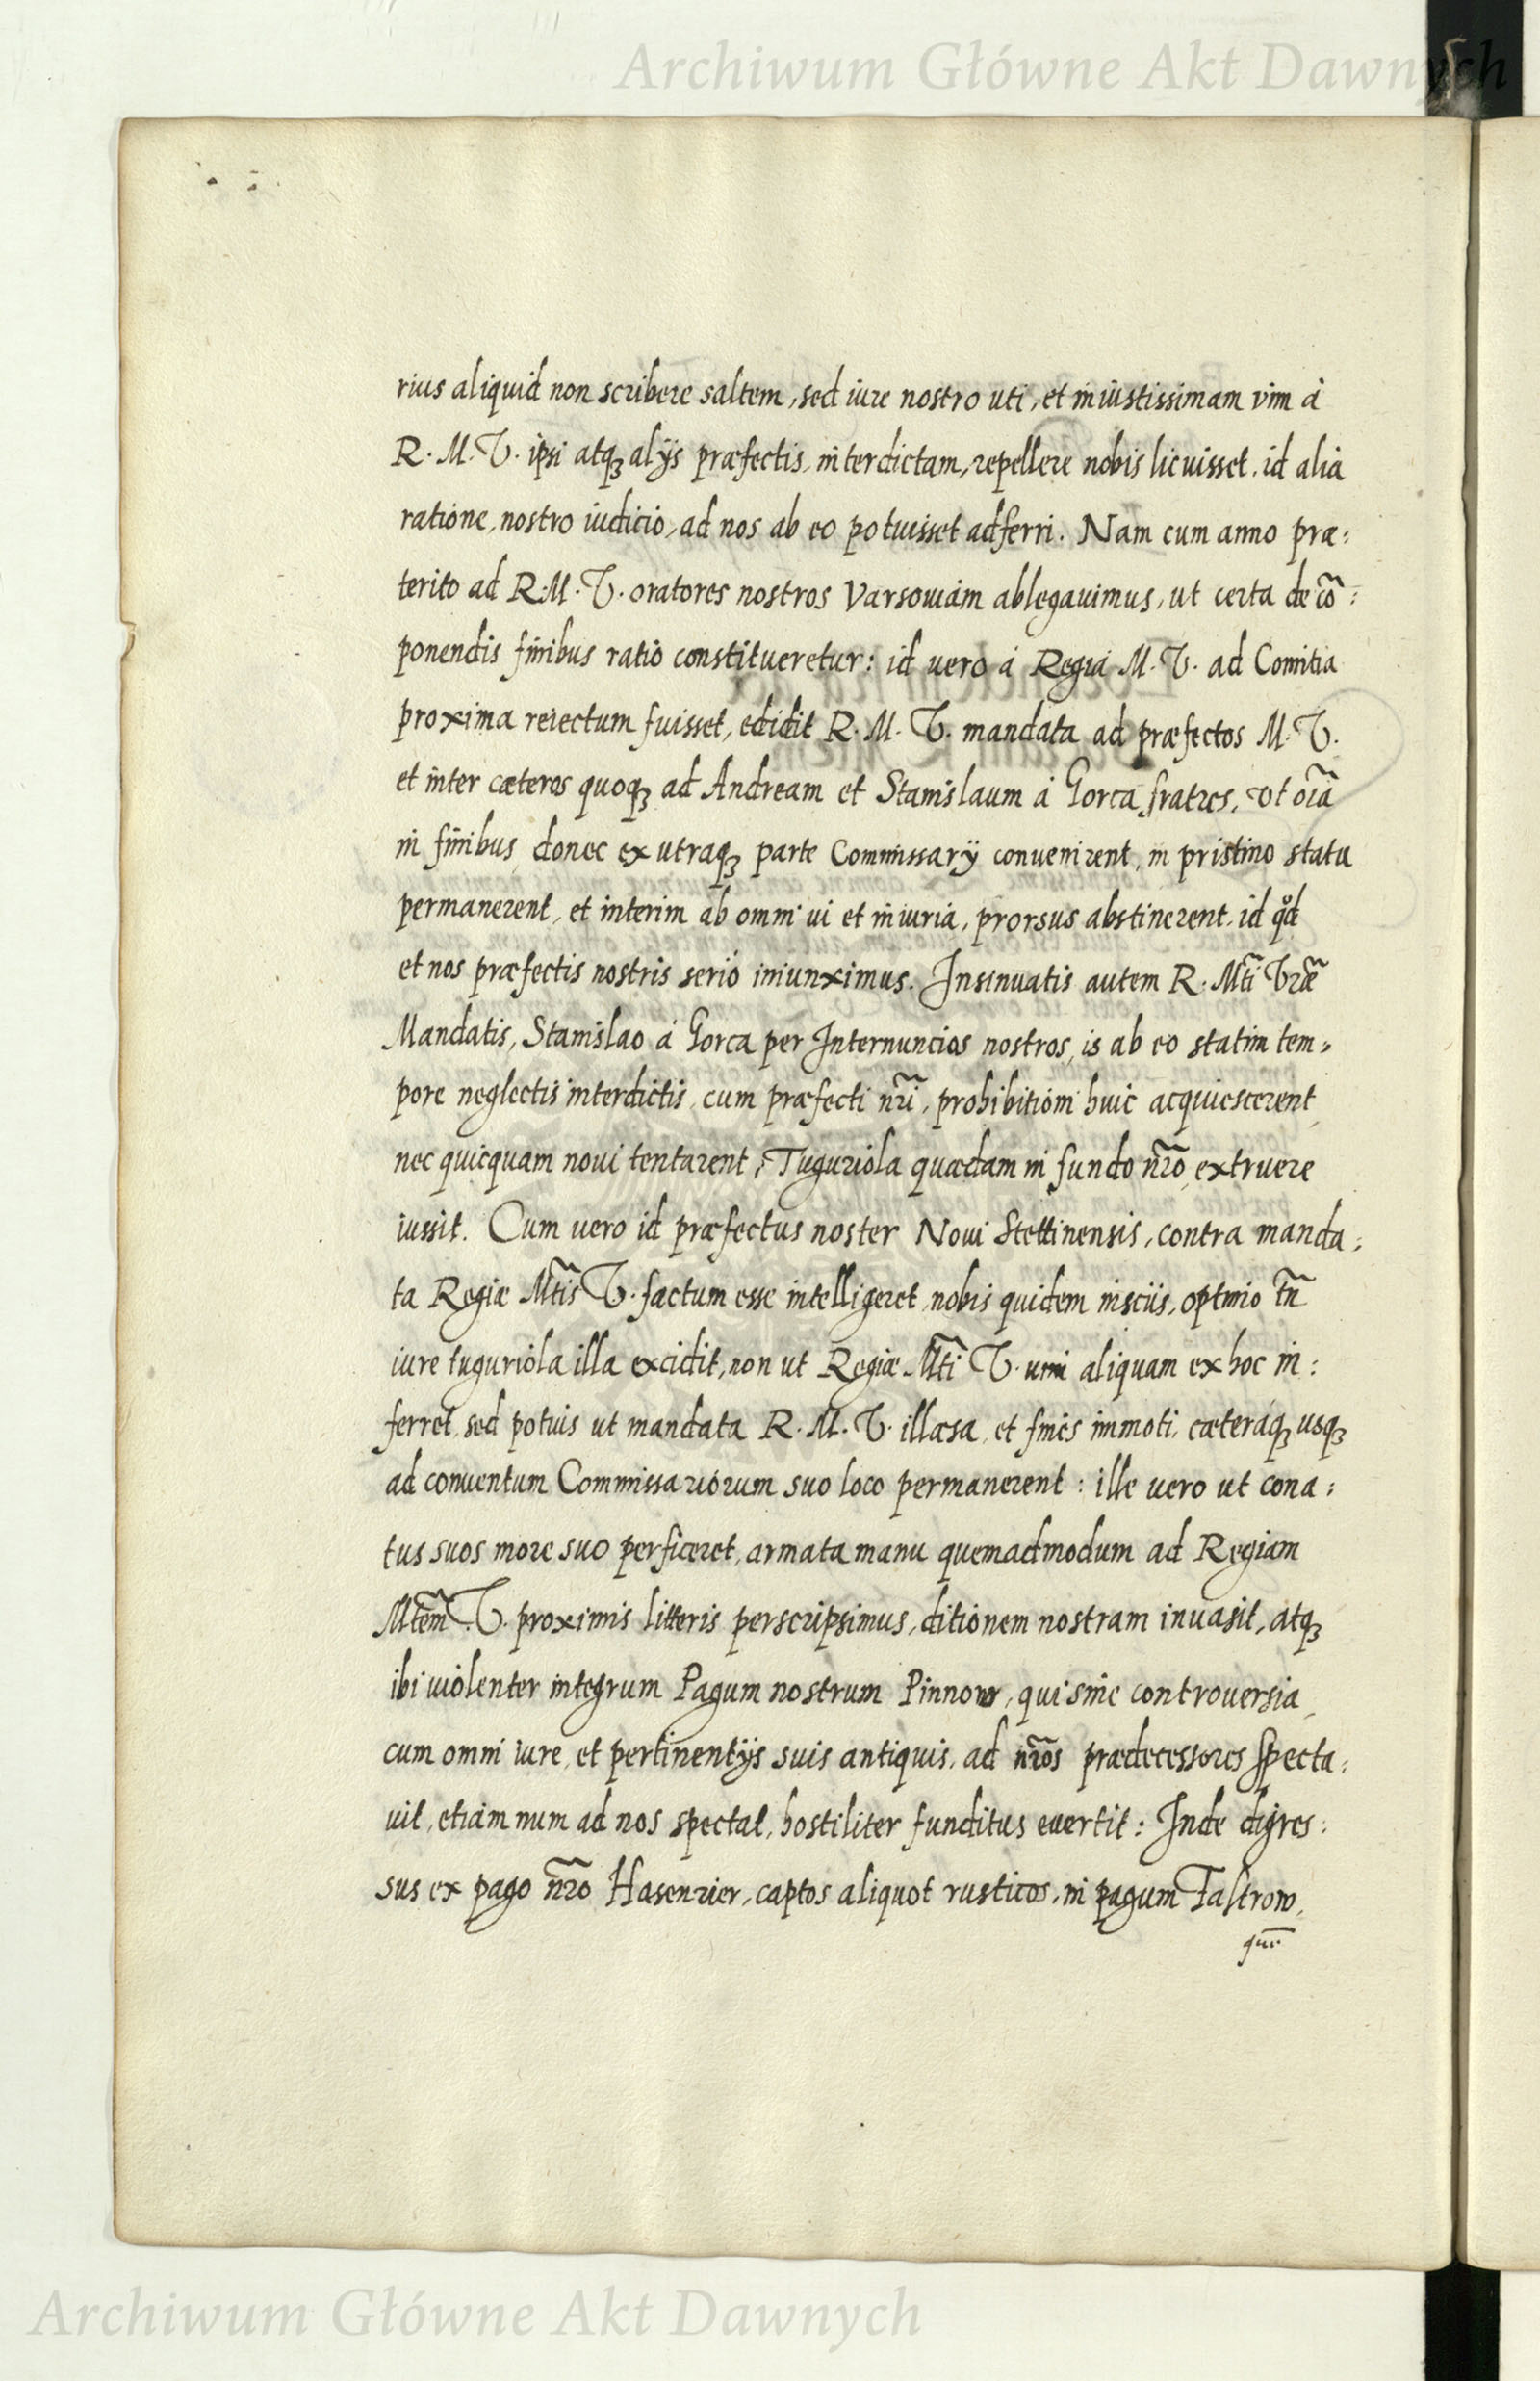 Archiwum Główne Akt Dawnych
rius aliquid non scribere saltem, sed iure nostro uti, et iniustissimam vim à
R. M. V. ipsi atq₃ alijs præfectis, interdictam, repellere nobis licuisset, id alia
ratione, nostro iudicio, ad nos ab eo potuisset adferri. Nam cum anno præ:
terito ad R. M. V. oratores nostros Varsouiam ablegauimus, ut certa de cõ:
ponendis finibus ratio constitueretur: id uero à Regia M. V. ad Comitia
proxima reiectum fuisset, edidit R. M. V. mandata ad præfectos M. V.
et inter cæteros quoq₃ ad Andream et Stanislaum à Gorca fratres, vt oĩa
in finibus donec ex utraq₃ parte Commissarÿ conuenirent, in pristino statu
permanerent, et interim ab omni ui et iniuria, prorsus abstinerent, id qd
et nos præfectis nostris seriò iniunximus. Insinuatis autem R. Mti Vræ
Mandatis, Stanislao à Gorca per Internuncios nostros, is ab eo statim tem,
pore neglectis interdictis, cum præfecti nr̃i, prohibitioni huic acquiescerent
nec quicquam noui tentarent, Tuguriola quædam in fundo nr̃o extruere
iussit. Cum uero id præfectus noster Noui Stettinensis, contra manda:
ta Regiæ Mtis V. factum esse intelligeret, nobis quidem insciis, optimo tñ
iure tuguriola illa excidit, non ut Regiæ Mti V. uim aliquam ex hoc in:
ferret, sed potius ut mandata R. M. V. illæsa, et fines immoti, cæteraq₃ usq₃
ad conuentum Commissariorum suo loco permanerent: ille uero ut cona:
tus suos more suo perficeret, armata manu quemadmodum ad Regiam
Mtem V. proximis litteris perscripsimus, ditionem nostram inuasit, atq₃
ibi uiolenter integrum Pagum nostrum Pinnow, qui sine controuersia
cum omni iure, et pertinentijs suis antiquis, ad nr̃os prædecessores specta:
uit, etiam num ad nos spectat, hostiliter funditus euertit: Inde digres:
sus ex pago nr̃o Hasenrier, captos aliquot rusticos, in pagum Tastrow,
Archiwum Główne Akt Dawnych